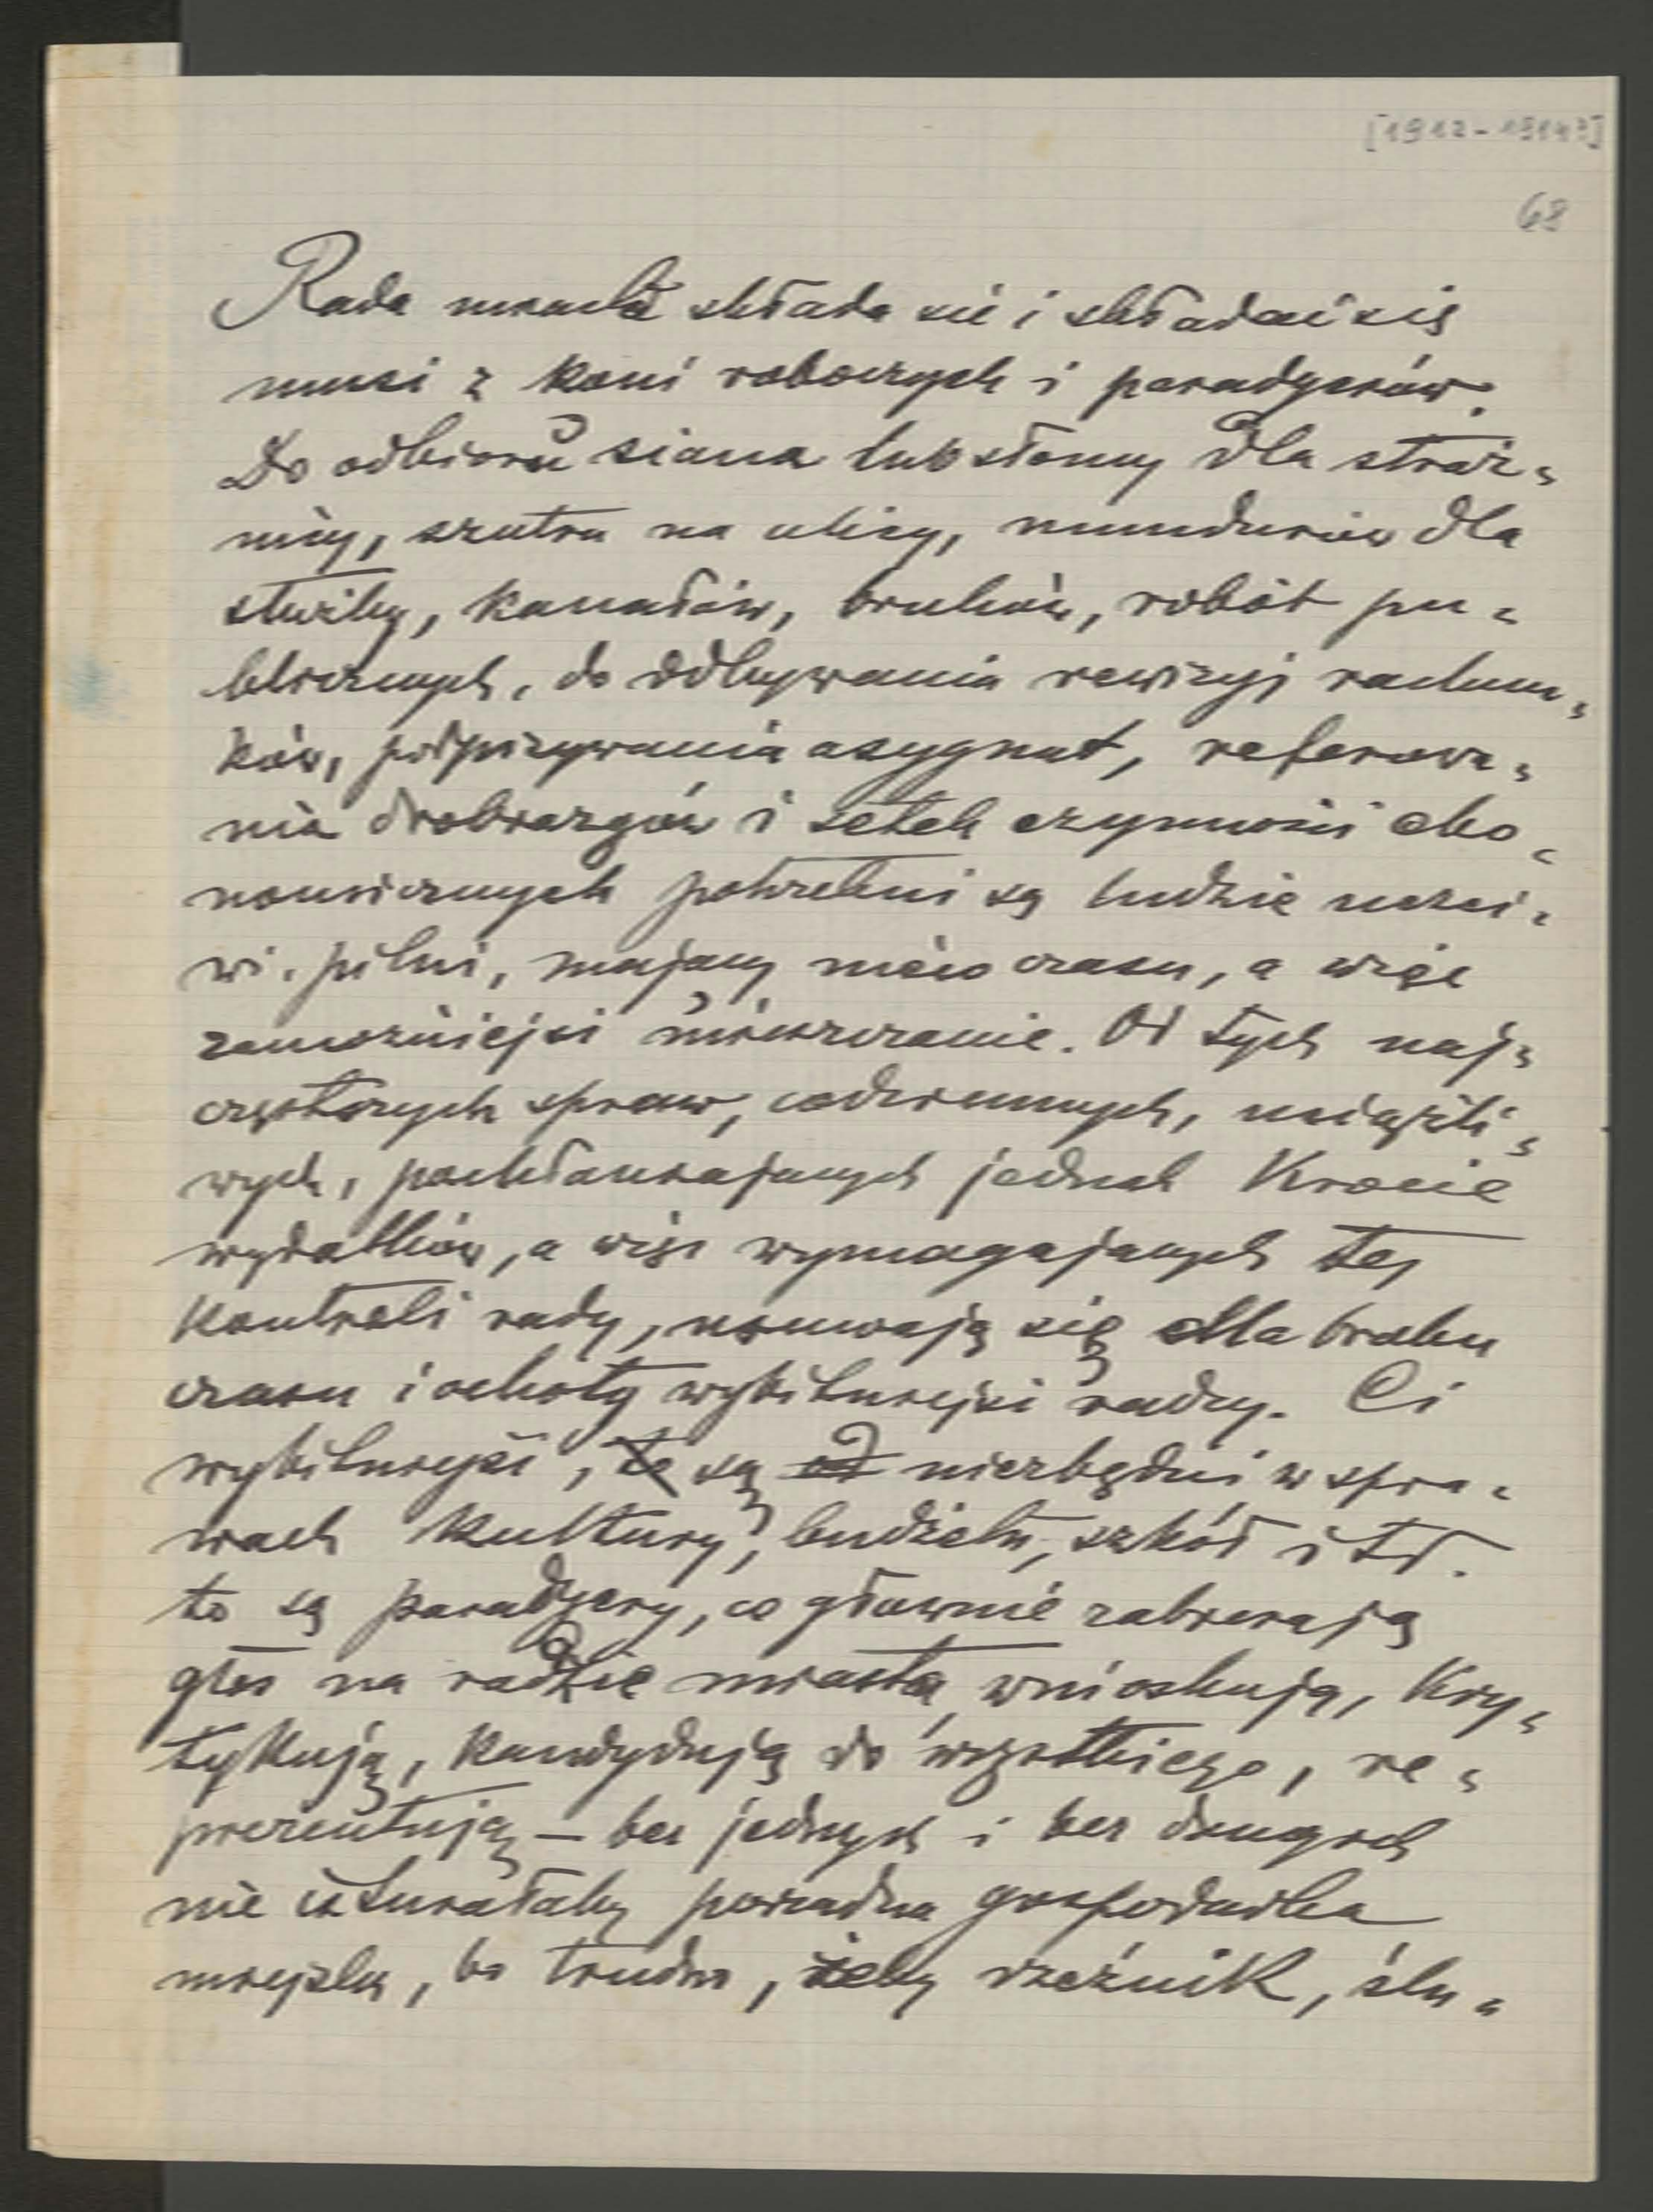 [1912-1914?]
68
Rada miasta składa się i składać się
musi z koni roboczych i paradyerów.
Do odbioru siana lub słomy dla straż=
nicy, szutru na ulicy, mundurów dla
służby, kanałów, bruków, robót pu=
blicznych, do odbywania rewizyi rachun=
ków, podpisywania asygnat, referowa=
nia drobiazgów i setek czynności eko=
nomicznych potrzebni są ludzie uczci=
wi, pilni, mający nieco czasu, a więc
zamożniejsi mieszczanie. Od tych naj=
częstszych spraw, codziennych, uciążli=
wych, pochłaniających jednak krocie
wydatków, a więc wymagających tej
kontroli rady, usuwają się dla braku
czasu i ochoty wybitniejsi radcy. Ci
wybitniejsi, są niezbędni w spra=
wach kultury, budżetu, szkół i td.
to są paradyery, co głównie zabierają
głos na radzie miasta, wnioskują, kry=
tykują, kandydują do wszystkiego, re=
prezentują – bez jednych i bez drugich
nie istniałaby porządna gospodarka
miejska, bo trudno, żeby rzeźnik, ślu=